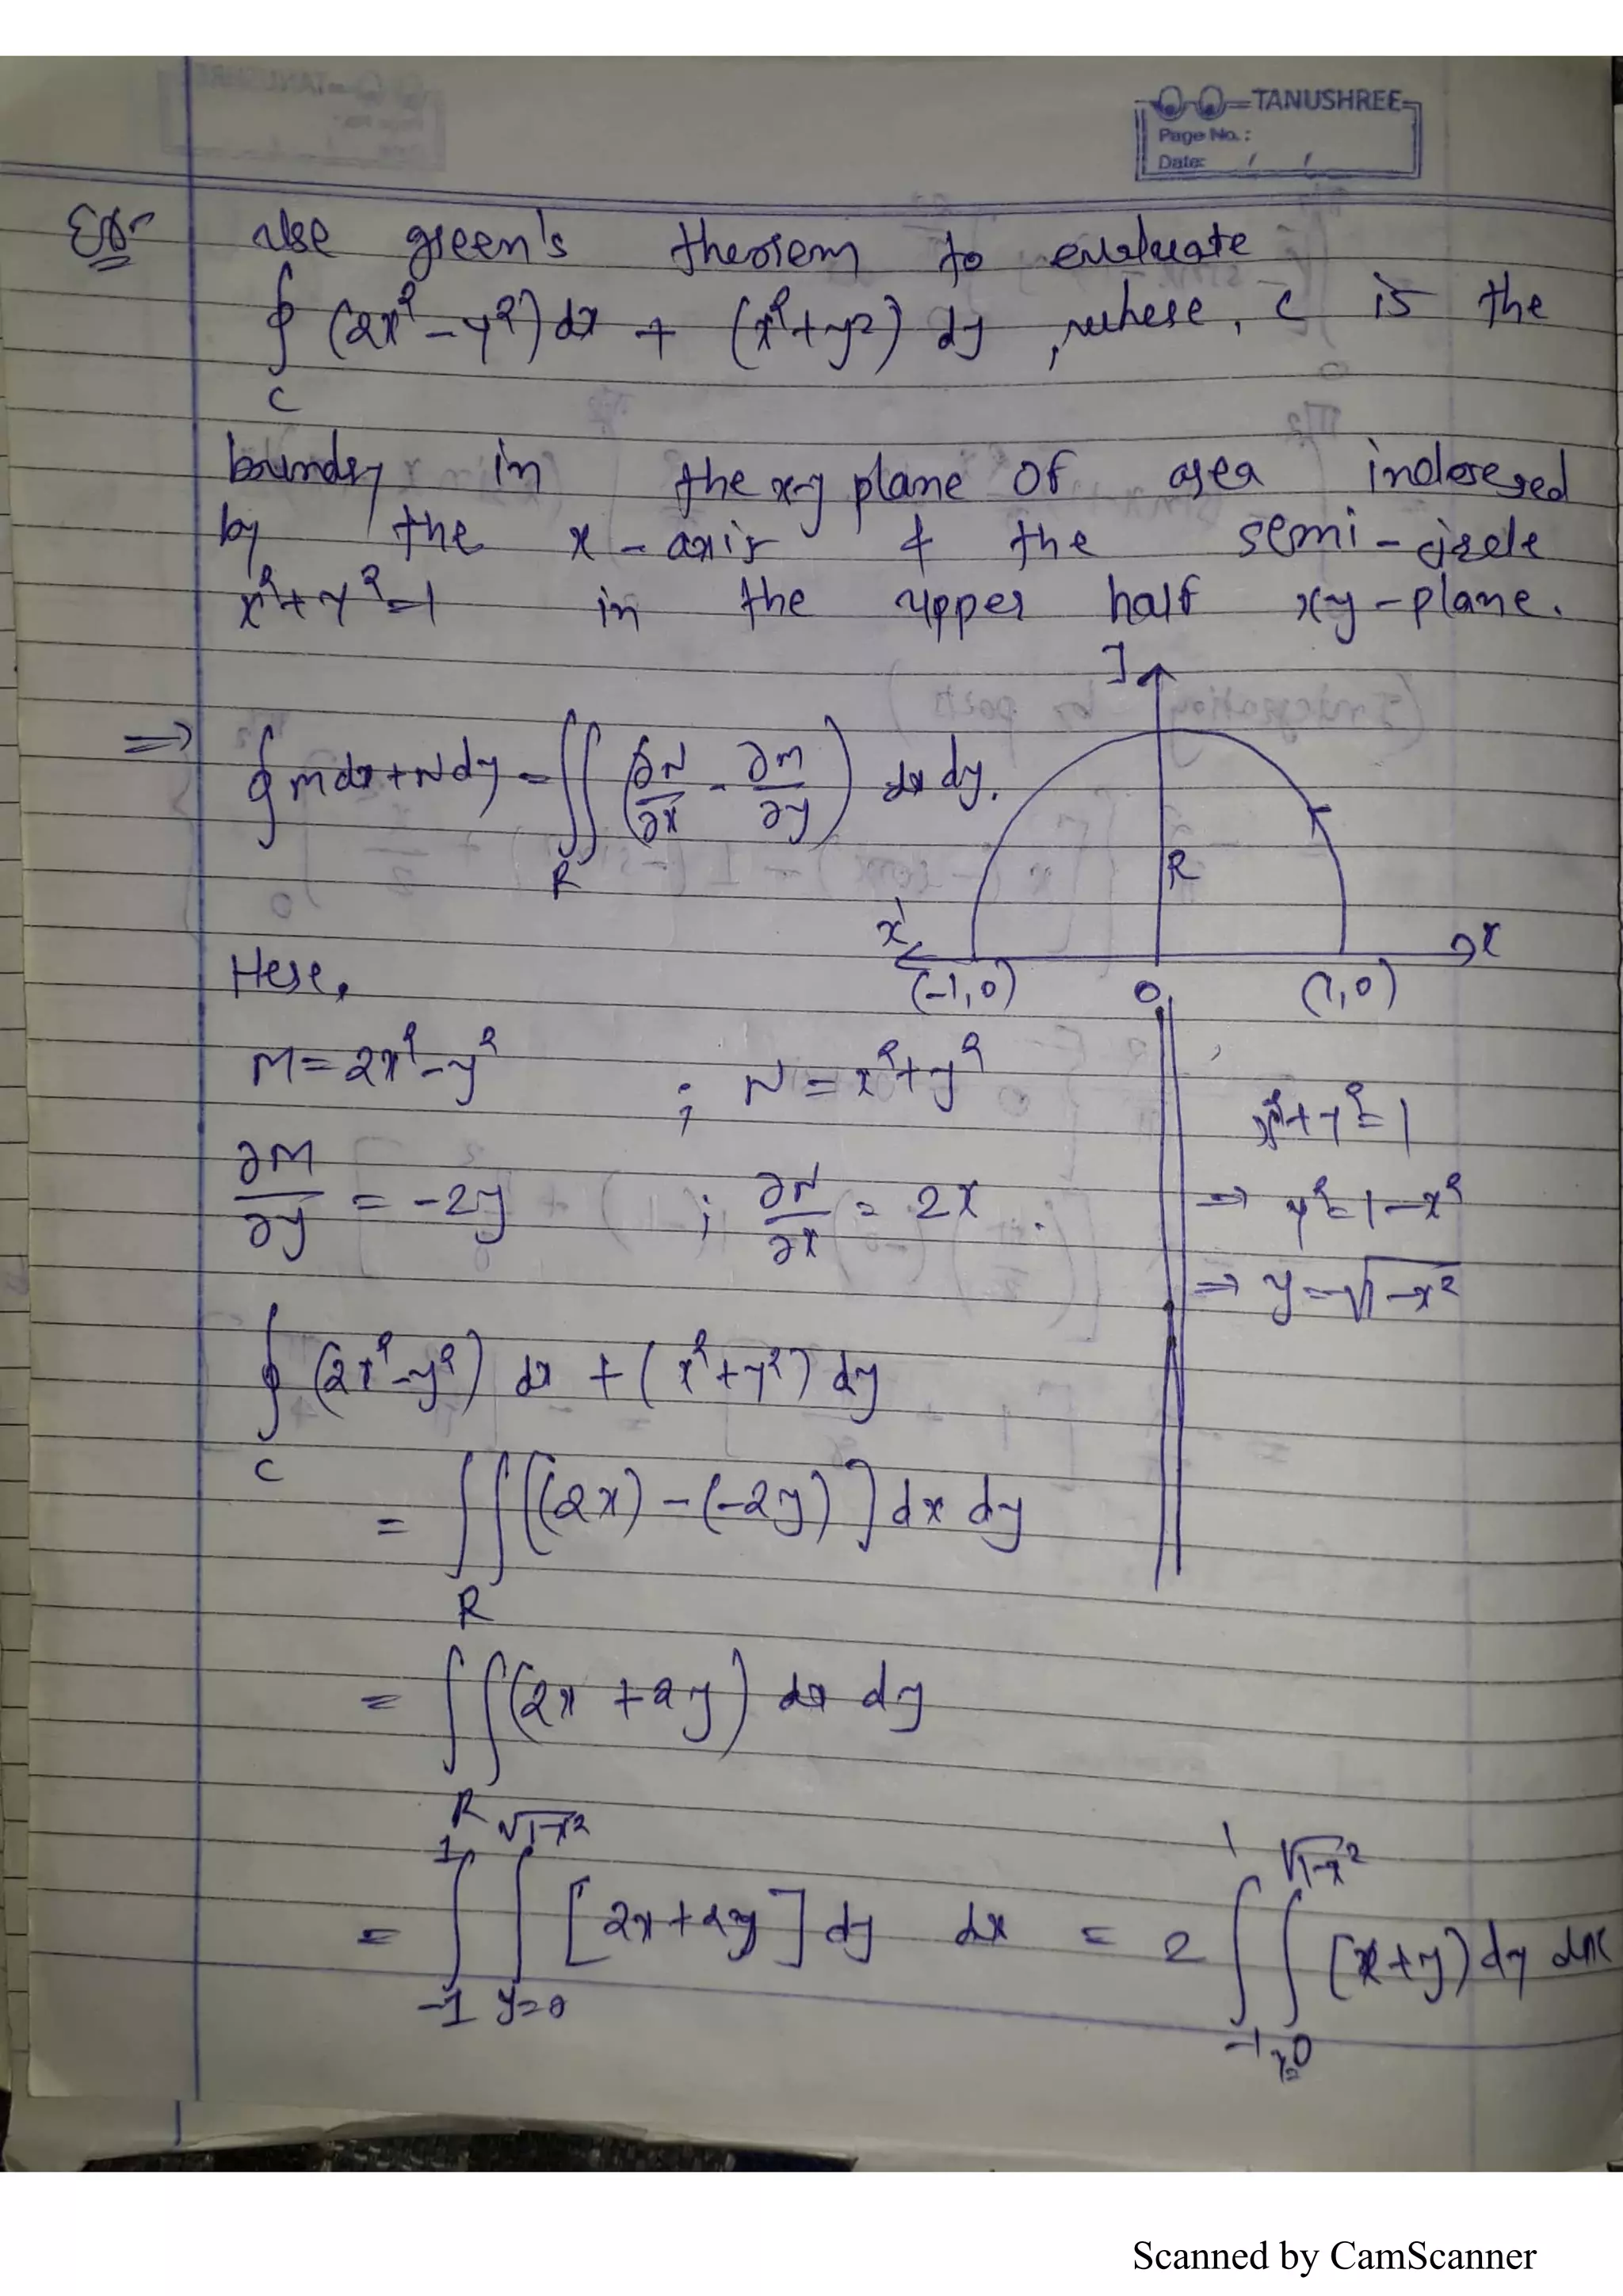 TANUSHREE
Page No.:
Date: / /
Ex- Use green's theorem to evaluate
∮ (2x²-y²)dx + (x²+y2) dy , where, c is the
c
boundry in the x-y plane of area inclosered
by the x-axis & the semi-circle
x²+y²=1 in the upper half xy-plane.
⇒ ∮ mdx+Ndy = ∬ (∂N/∂x - ∂m/∂y) dx dy.
R
y
R
x' x
(-1,0) O (1,0)
Here,
M=2x²-y² ; N=x²+y²
x²+y²=1
∂M/∂y = -2y ; ∂N/∂x = 2x .
⇒ y²=1-x²
⇒ y=√1-x²
∮ (2x²-y²) dx +(x²+y²) dy
c
= ∬ [(2x)-(-2y)] dx dy
R
= ∬ (2x +2y) dx dy
R
1 √1-x² 1 √1-x²
= ∫ ∫ [2x+2y] dy dx = 2 ∫ ∫ (x+y) dy dx
-1 y=0 -1 y=0
Scanned by CamScanner